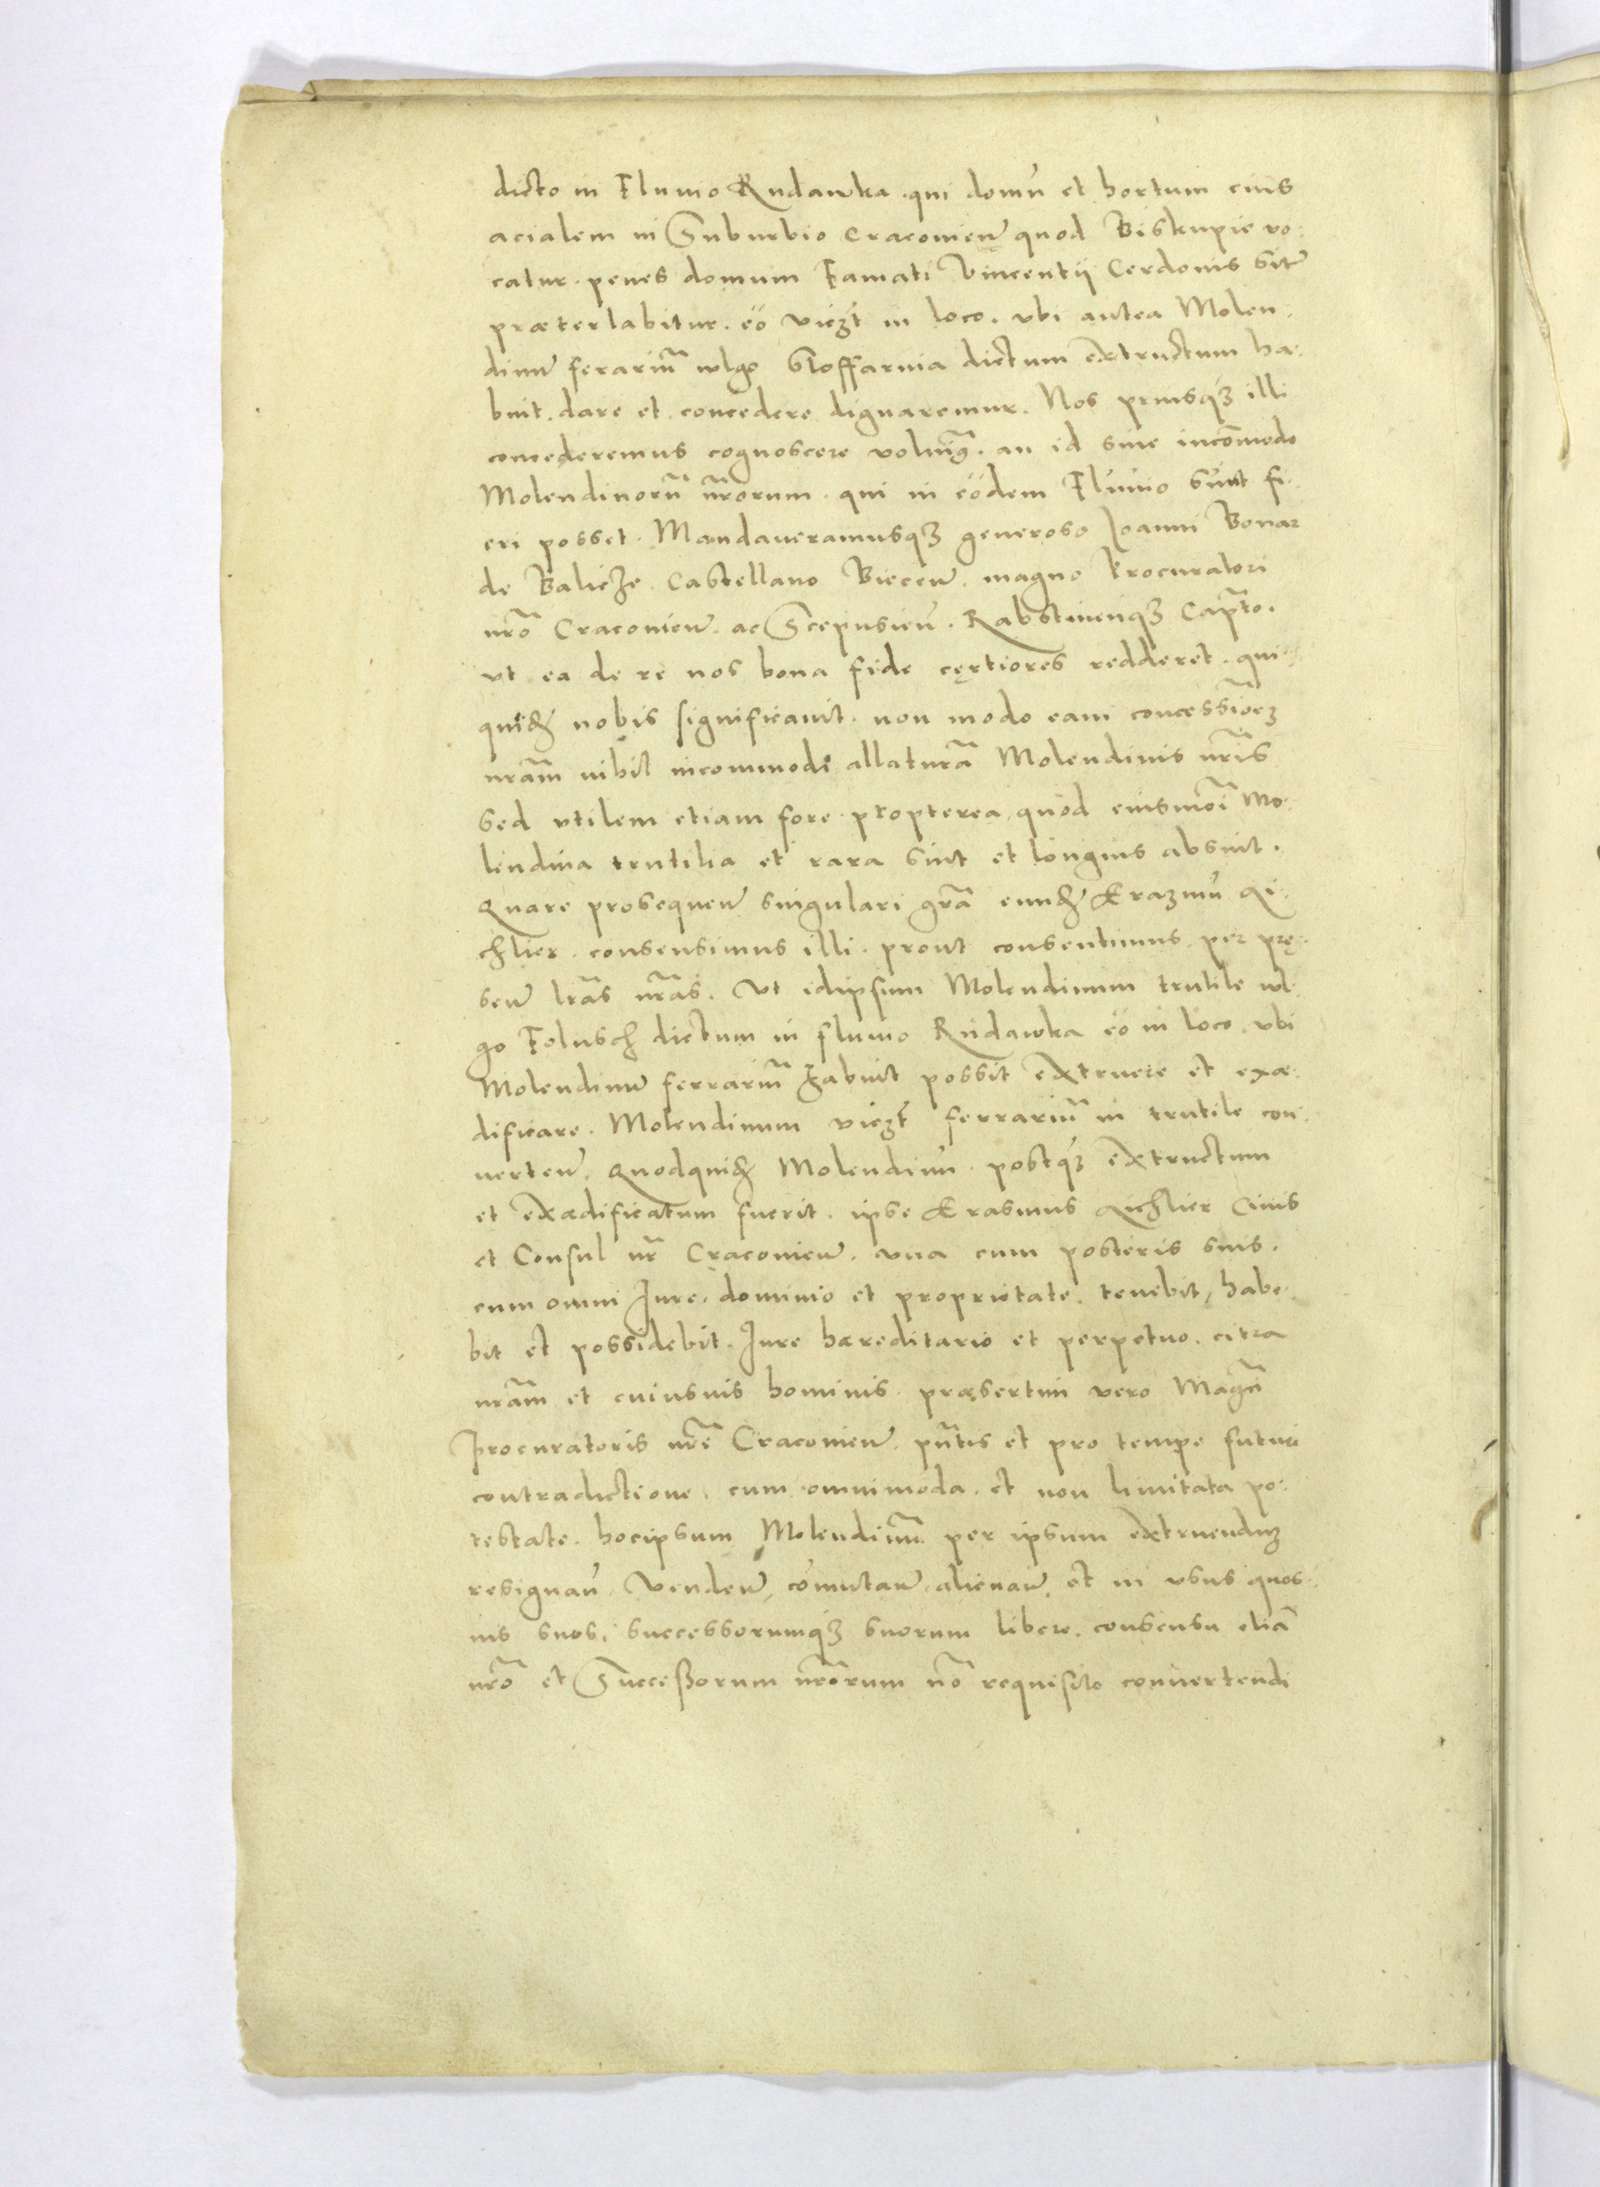 dicto in Fluvio Rudawka qui domũ et hortum eius
acialem in Suburbio Cracovien̄ quod Biskupie vo-
catur. penes domum Famati Vincentij Cerdonis sitũ
præterlabitur. eo vicz̃t in loco. vbi antea Molen-
dinũ ferariũ wlgo Sloffarnia dictum extructum ha-
buit. dare et concedere dignaremur. Nos priusq̃ illi
concederemus cognoscere voluimꝰ. an id sine incõmodo
Molendinorũ nr̃orum. qui in eodem Fluvio sunt fi-
eri posset. Mandaveramusqꝫ generoso Ioanni Bonar
de Balicze. Castellano Biecen̄. magno Procuratori
nr̃o Cracovien̄. ac Scepusien̄. Rabstinen̄qꝫ Cap̃to.
vt ea de re nos bona fide cęrtiores redderet. qui
quid̃ nobis significavit. non modo eam concessioẽ
nr̃am nihil incommodi allaturã Molendinis nr̃is
sed vtilem etiam fore. propterea quod eiusmõi Mo-
lendina trutilia et rara sint et longius absint.
Quare prosequen̄ singulari gr̃a eund̃ Erazmũ Ai-
chler. consensimus illi. prout consentimus per prę-
sen̄ lr̃as nr̃as. Vt idipsum Molendinum trutile wl-
go Folusch dictum in fluvio Rudawka eo in loco vbi
Molendinũ ferrariũ habuit possit extruere et exæ-
dificare. Molendinum vicz̃t ferrariũ in trutile con-
verten̄. Quodquid̃ Molendinũ. postq̃ extructum
et exædificatum fuerit. ipse Erasmus Aichler Civis
et Consul nr̃ Cracovien̄. vna cum posteris suis.
cum omni Iure. dominio et proprietate. tenebit, habe-
bit et possidebit. Iure hæreditario et perpetuo. citra
nr̃am et cuiusvis hominis. præsertim vero Magñi
Procuratoris nr̃i Cracovien̄. pñtis et pro tempe futuri
contradictione. cum omnimoda. et non limitata po-
testate. hocipsum Molendinũ per ipsum extruendũ
resignan̄. Venden̄, cõmutan̄, alienan̄, et in vsus quos-
vis suos, successorumqꝫ suorum libere. consensu etiã
nr̃o et Successorum nr̃orum nõ requisito convertendi